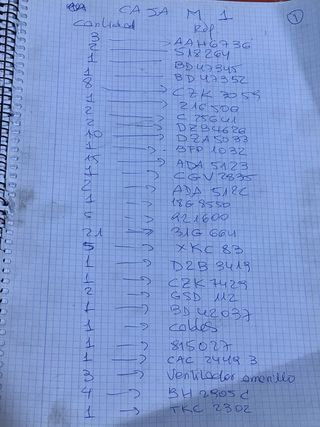 CAJA M 1 ①
Cantidad Ref
3 → AAH6736
2 → 518264
1 → BD47345
1 → BD47352
8 → CZK 7059
1 → 216506
2 → C 25641
2 → DZB4626
10 → DZA5033
1 → BFP 1032
15 → ADA 5123
1 → CGV2835
2 → ADA 512C
1 → 18G 8550
5 → 921600
21 → 31G 664
5 → XKC 83
1 → DZB 3419
1 → CZK 7429
2 → GSD 112
1 → BD 42037
1 → coldos
1 → 815027
1 → CAC 2449 3
3 → Ventilador amarillo
4 → BH 2905 C
1 → TKC 2302